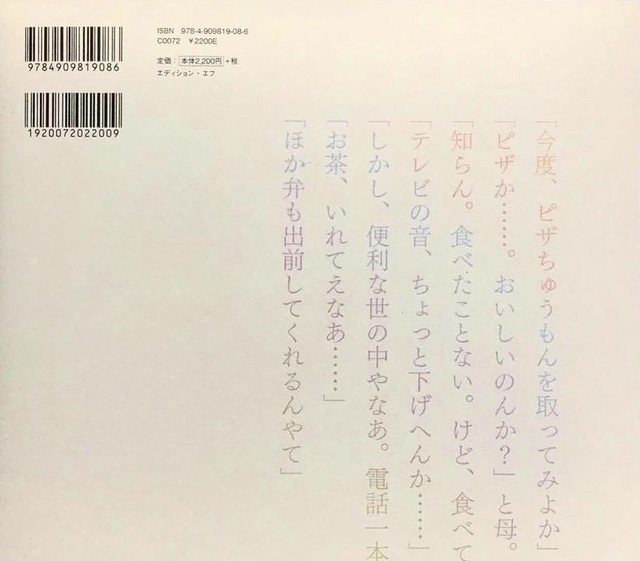 ISBN 978-4-909819-08-6
C0072 ¥2200E
定価：本体2,200円+税
エディション・エフ
9784909819086
1920072022009
「今度、ピザちゅうもんを取ってみよか」
「ピザか……。おいしいのんか？」と母。
「知らん。食べたことない。けど、食べて
「テレビの音、ちょっと下げへんか……」
「しかし、便利な世の中やなあ。電話一本
「お茶、いれてえなあ……」
「ほか弁も出前してくれるんやて」